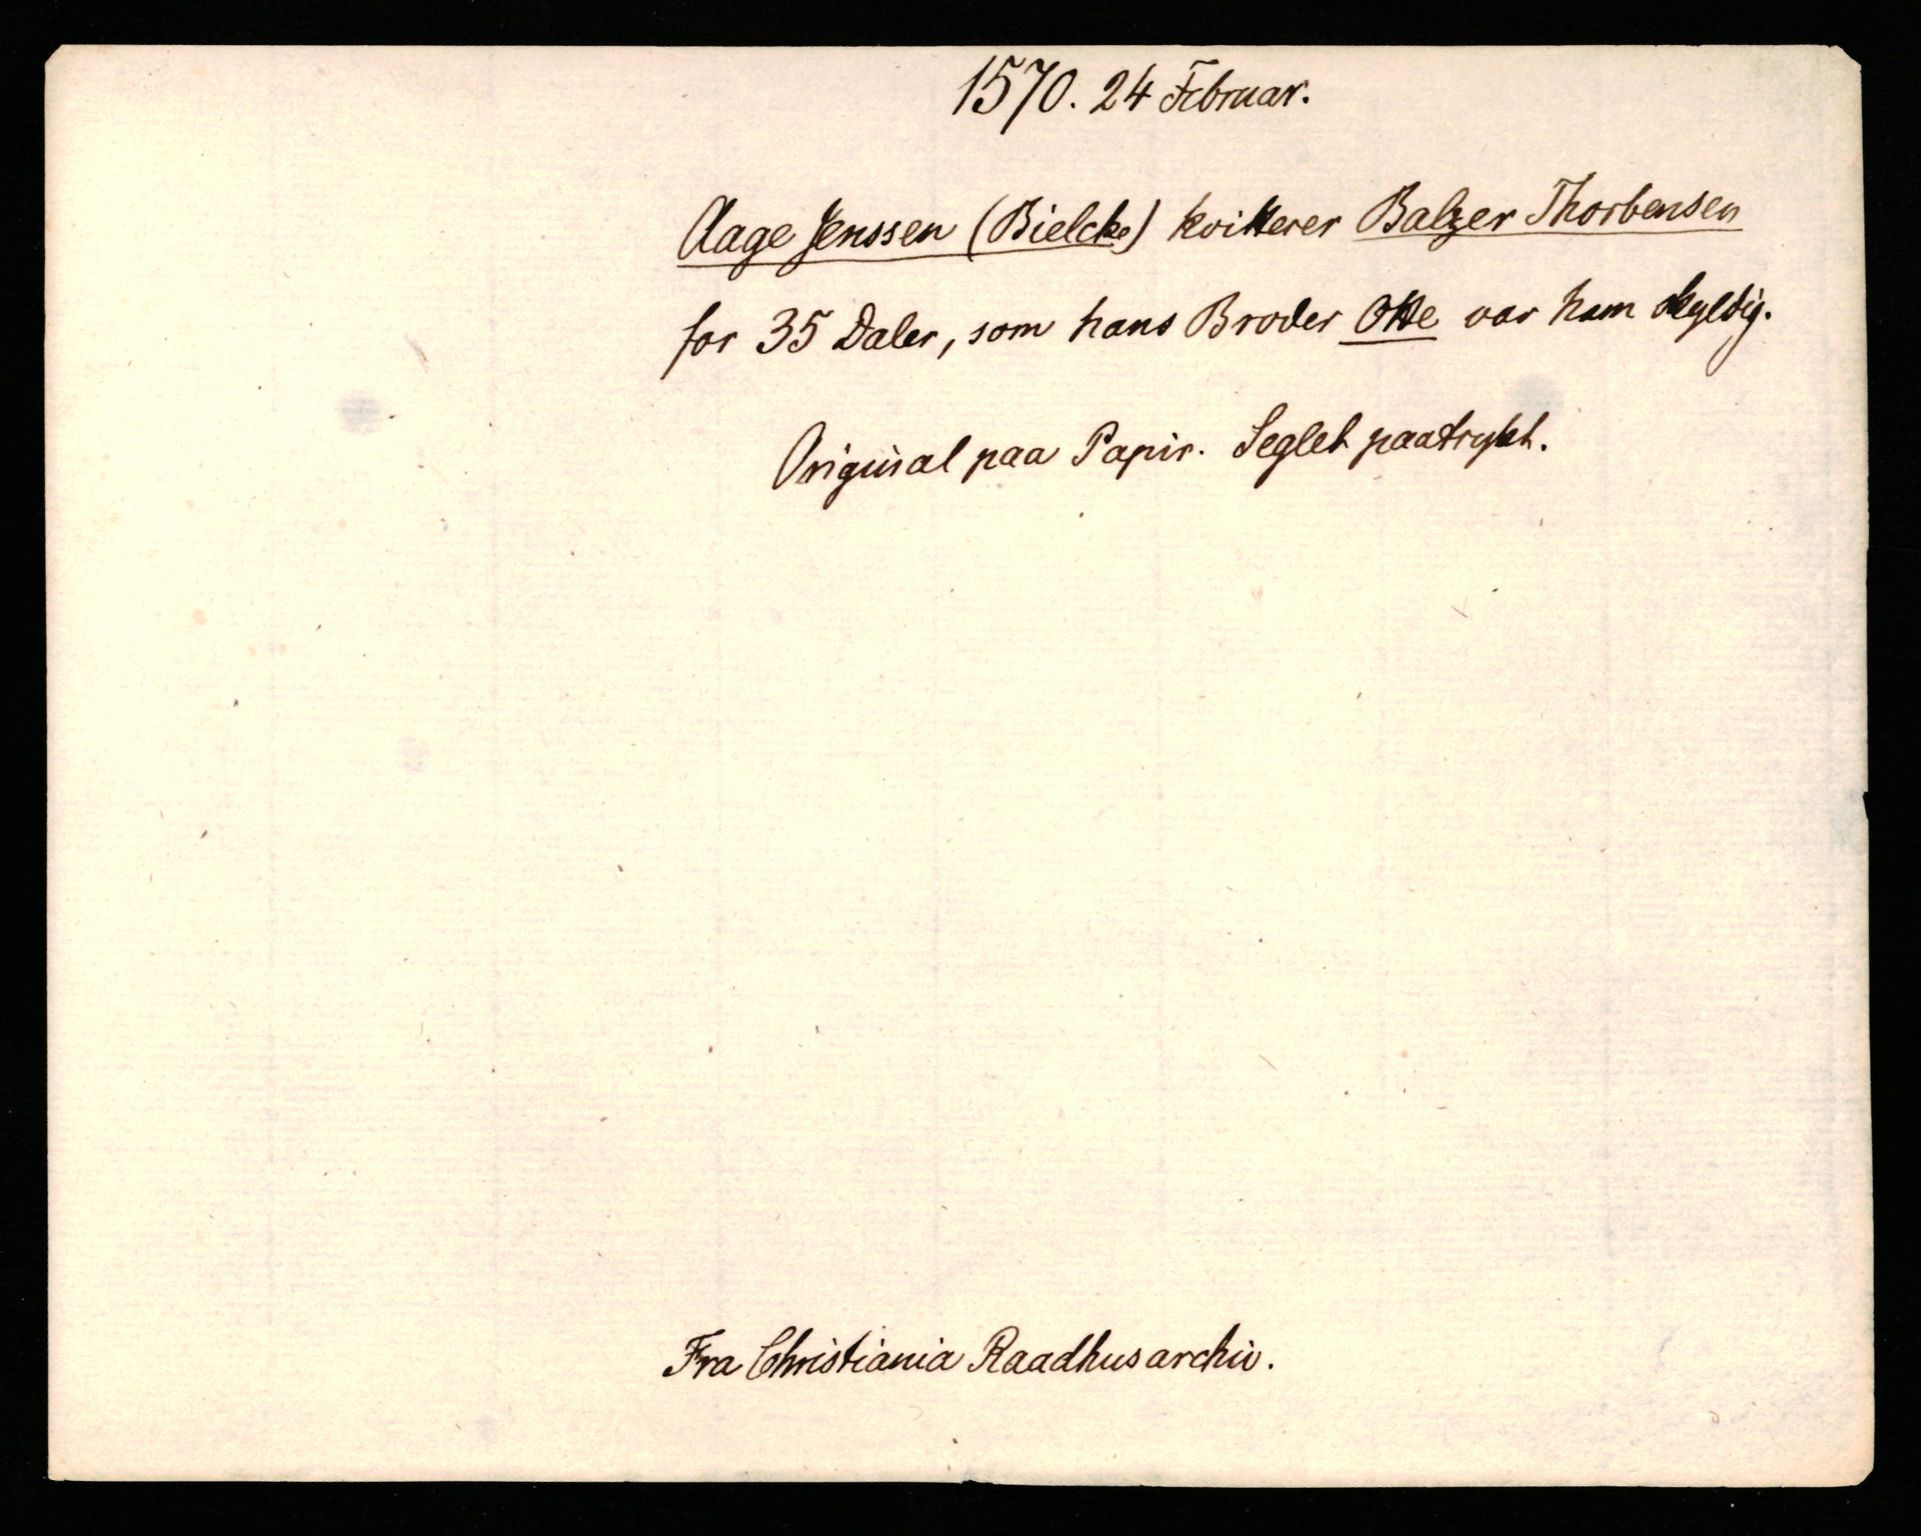 1570. 24 Februar.
Aage Jenssen (Bielcke) kvitterer Balzer Thorbensen
for 35 Daler, som hans Broder Otte var ham skyldig.
Original paa Papir. Seglet paatrykt.
Fra Christiania Raadhusarchiv.